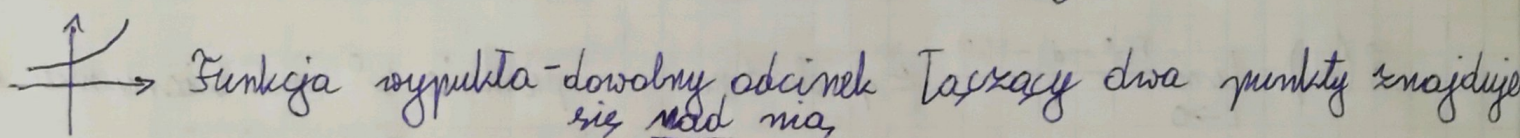 Funkcja wypukła - dowolny odcinek łączący dwa punkty znajduje
się nad nią